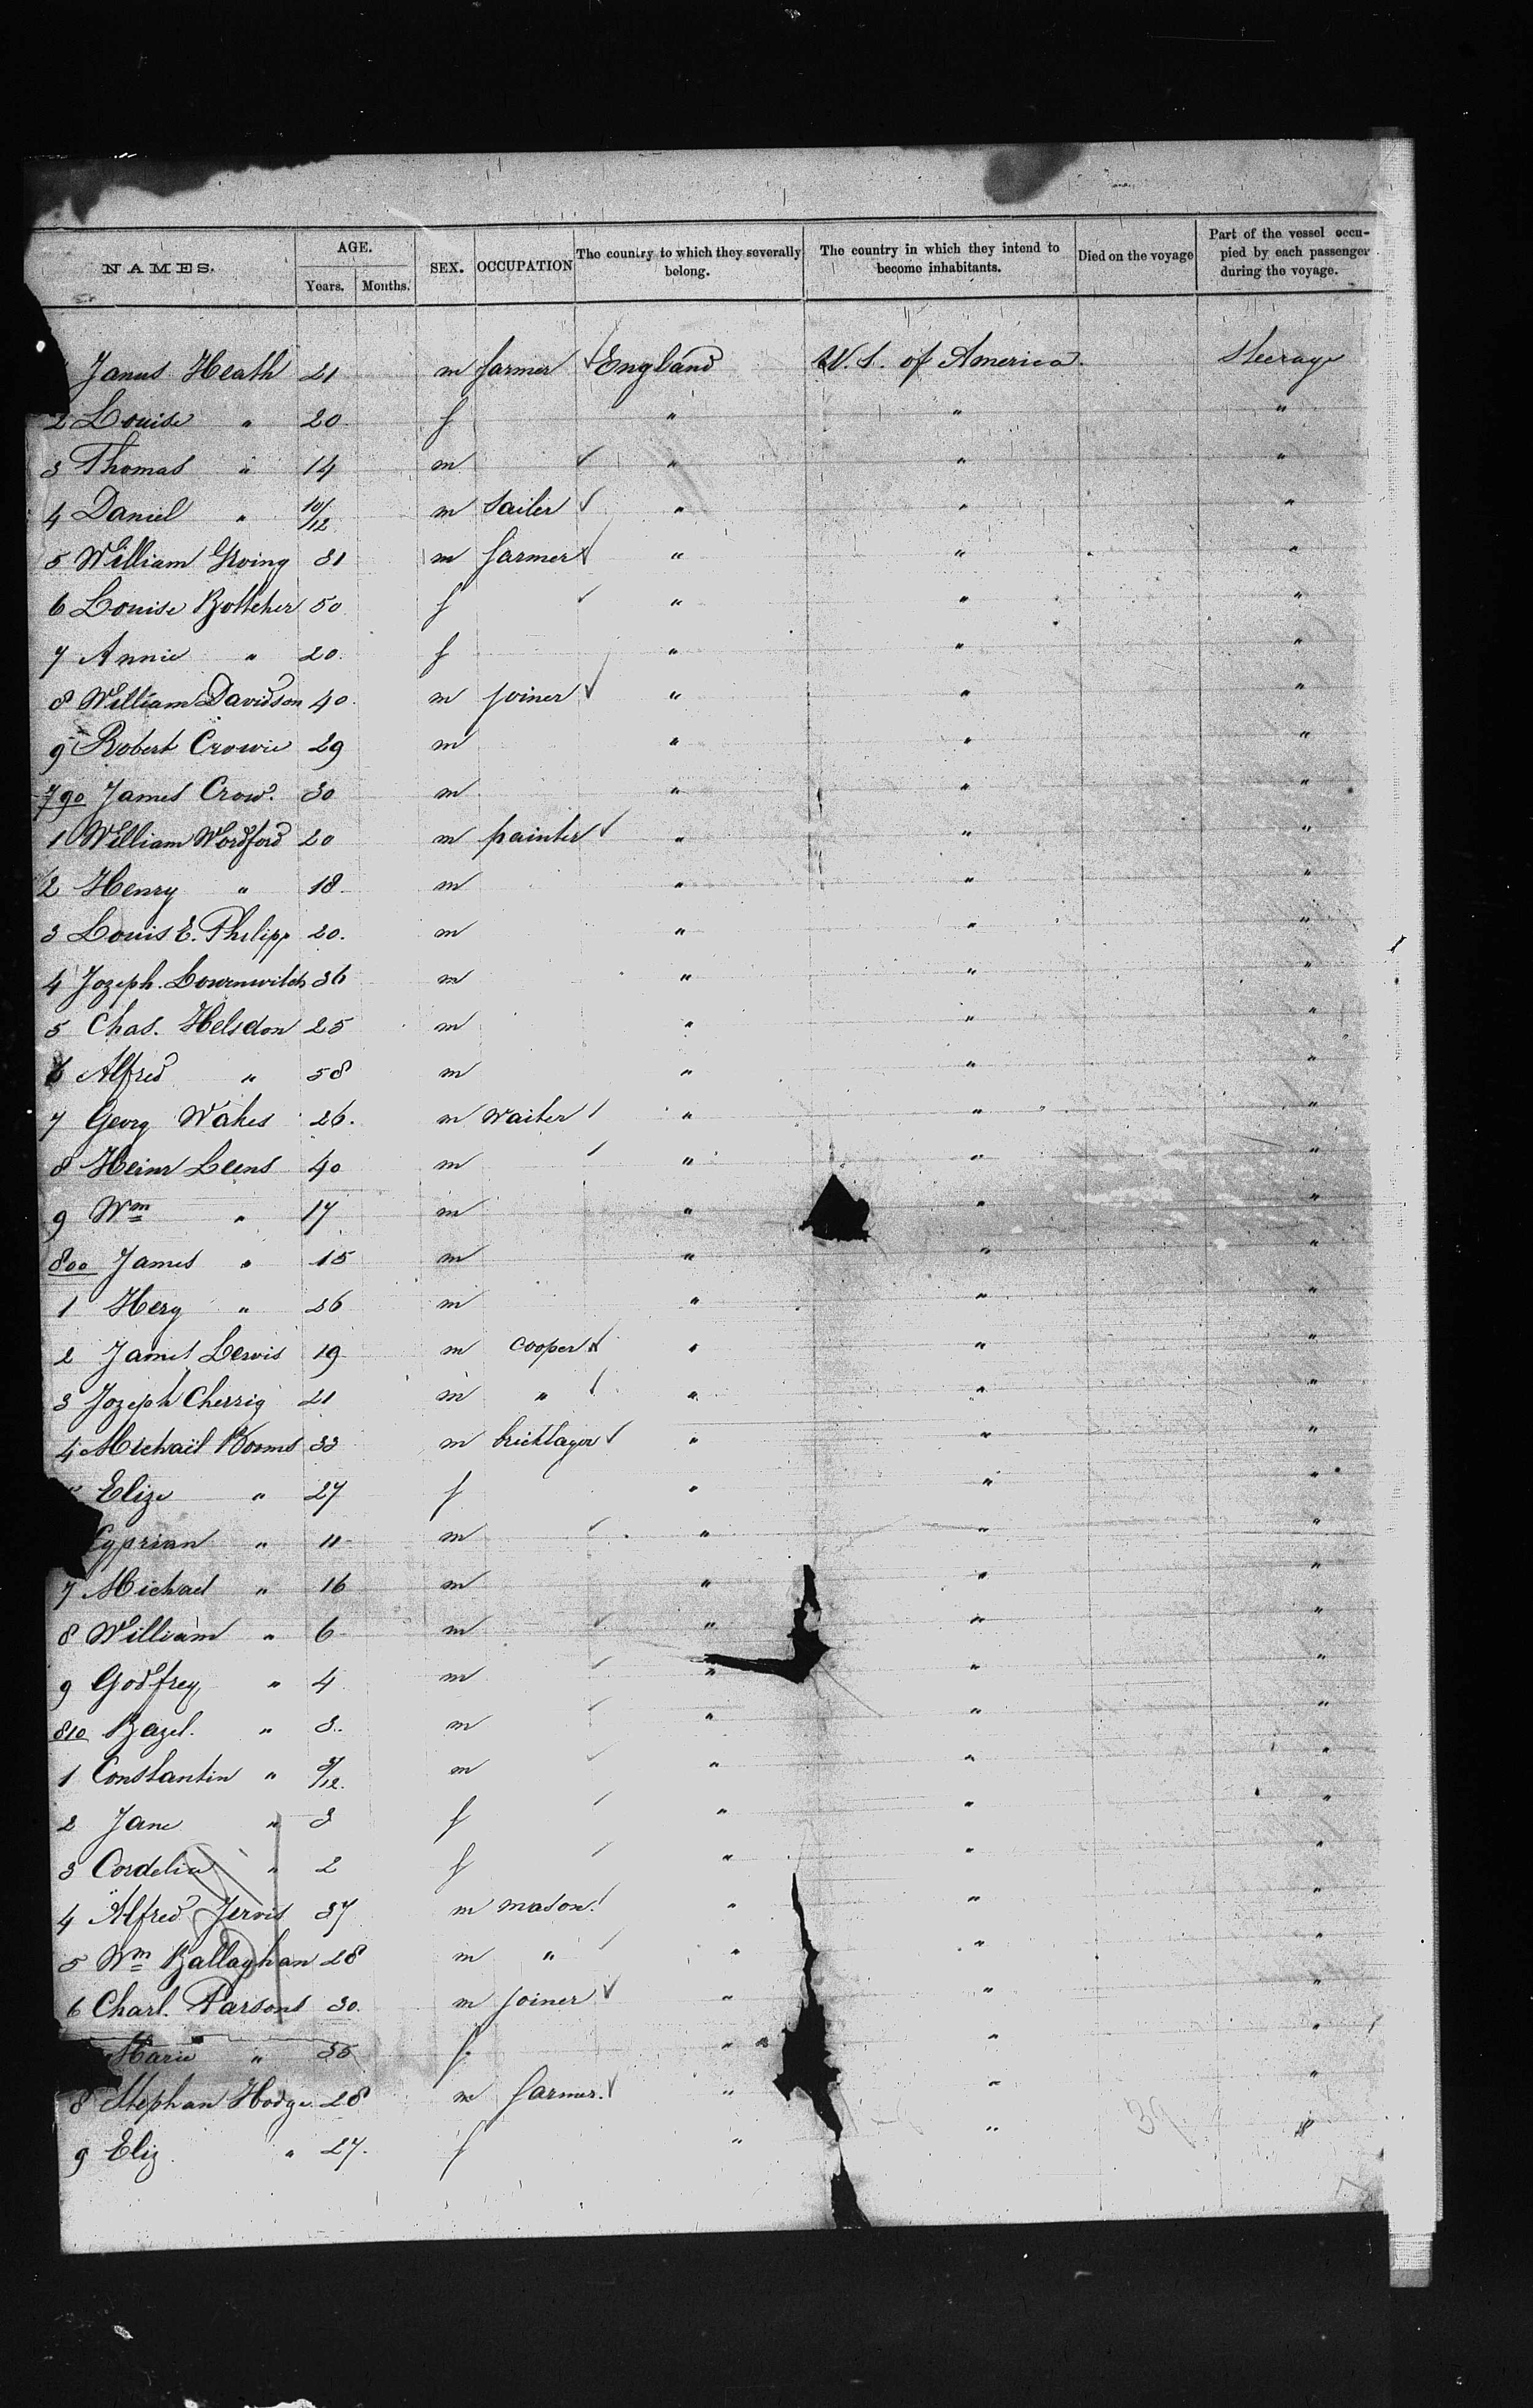 NAMES. AGE. Years. Months. SEX. OCCUPATION The country to which they severally belong. The country in which they intend to become inhabitants. Died on the voyage Part of the vessel occupied by each passenger during the voyage.
James Heath 21 m farmer England U.S. of America. Steerage
2 Louise " 20 f " " "
3 Thomas " 14 m " " "
4 Daniel " 10/12 m sailer " " "
5 William Irving 31 m farmer " " "
6 Louise Bottcher 50 f " " "
7 Annie " 20. f " " "
8 William Davidson 40. m joiner " " "
9 Robert Crowie 29 m " " "
790 James Crow. 30 m " " "
1 William Wordford 20 m painter " " "
2 Henry " 18. m " " "
3 Louis E. Philipp 20. m " " "
4 Jozeph. 36 m " " "
5 Chas. Helsdon 25 m " " "
6 Alfred " 58 m " " "
7 Georg Wakes 26. m waiter " " "
8 Heinr Leens 40 m " " "
9 Wm " 17 m " " "
800 James " 15 m " " "
1 Hery " 26 m " " "
2 James Lewis 19 m cooper " " "
3 Jozeph Cherrig 21 m " " " "
4 Michaël Booms 33 m bricklayer " " "
Elize " 27 f " " "
Cyprian " 11 m " " "
7 Michael " 16 m " " "
8 William " 6 m " " "
9 Godfrey " 4 m " " "
810 Bazel. " 3. m " " "
1 Constantin " /12. m " " "
2 Jane " 3 f " " "
3 Cordelia " 2 f " " "
4 Alfred Jervis 37 m mason " " "
5 Wm Ballaghan 28 m " " " "
6 Charl. Parsons 30. m joiner " " "
Marie " 35 f. " " "
8 Stephan Hodge 28 m farmer. " " "
9 Eliz. " 27. f " " "
39